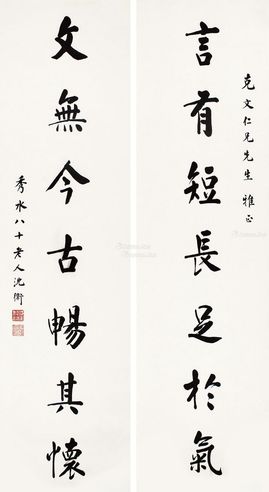 克文仁兄先生 雅正
言有短長足於氣
文無今古暢其懷
秀水八十老人沈衛